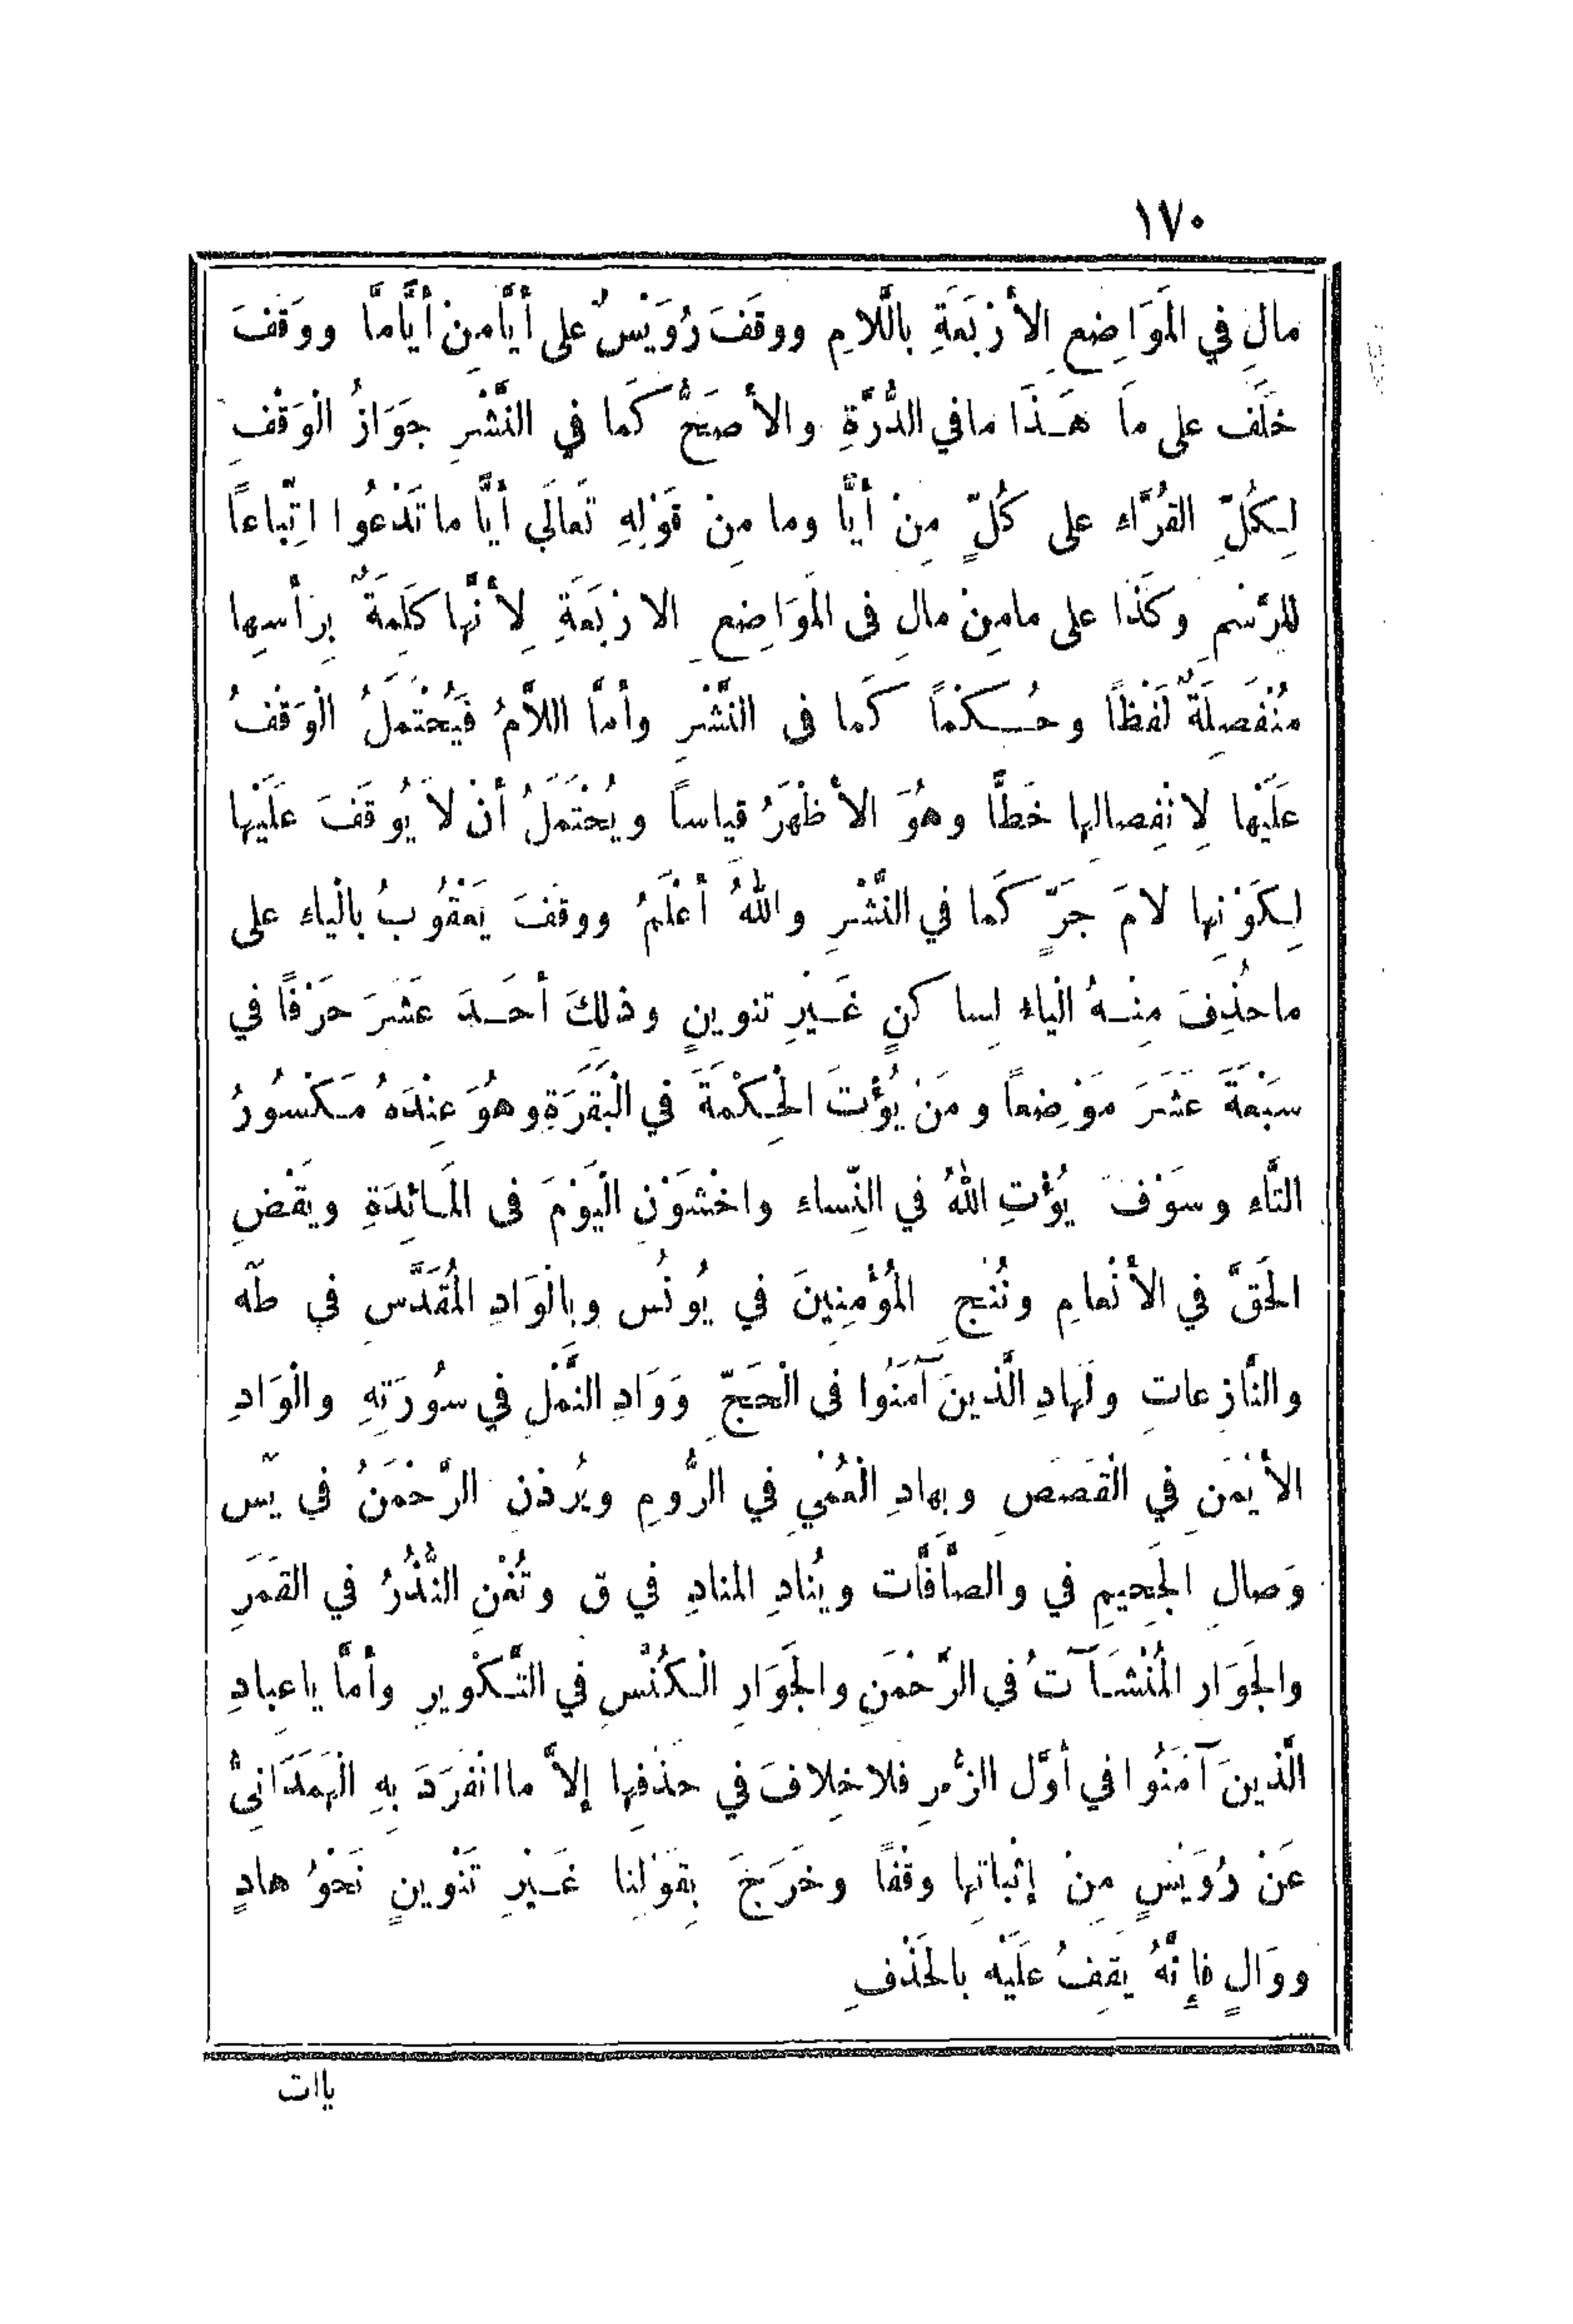 ١٧٠
مالِ في المَوَاضِعِ الأَرْبَعَةِ باللَّامِ ووقَفَ رُوَيْسٌ على أَيًّا مِنْ أَيًّامَّا ووَقَفَ
خَلَف على مَا هَـذَا مافي الدُّرَّةِ والأَصَحُّ كَما في النَّشْرِ جَوَازُ الْوَقْفِ
لِكُلِّ القُرَّاءِ على كُلٍّ مِنْ أَيًّا وما مِنْ قَوْلِهِ تَعَالَى أَيًّا ما تَدْعُوا اتِّباعاً
لِلرَّسْمِ وكَذَا على مامِنْ مالِ فى المَوَاضِعِ الارْبَعَةِ لِأَنَّها كَلِمَةٌ بِرَأْسِها
مُنْفَصِلَةٌ لَفْظاً وحُـكْماً كَما فى النَّشْرِ وأمَّا اللَّامُ فَيُحْتَمَلُ الْوَقْفُ
عَلَيْها لِانْفِصالِها خَطًّا وهُوَ الأَظْهَرُ قياساً ويُحْتَمَلُ أنْ لَا يُوقَفَ عَلَيْها
لِكَوْنِها لامَ جَرٍّ كَما في النَّشْرِ واللهُ أعْلَمُ ووقَفَ يَعْقُوبُ بالْياءِ على
ماحُذِفَ مِنْـهُ الْياءُ لِساكنٍ غَـيْرِ تنوينٍ وذلِكَ أحَـدَ عَشَرَ حَرْفًا في
سَبْعَةَ عَشَرَ مَوْضِعاً ومَنْ يُؤْتَ الْحِكْمَةَ في الْبَقَرَةِ وهُوَ عِنْدَهُ مَكْسُورُ
التَّاءِ وسَوْفَ يُؤْتِ اللهُ في النِّساءِ واخْشَوْنِ الْيَوْمَ فى المَـائِدَةِ ويَقْضِ
الحَقَّ في الأَنْعامِ ونُنْجِ المُؤْمِنِينَ في يُونُس وبِالْوَادِ المُقَدَّسِ في طه
والنَّازِعاتِ ولَهادِ الَّذينَ آمَنُوا فى الْحَجِّ وَوَادِ النَّمْلِ في سُورَتِهِ والْوَادِ
الأَيْمَنِ في الْقَصَصِ وبهادِ الْعُمْيِ في الرُّومِ ويُرِدْنِ الرَّحْمَنُ في يٓس
وَصالِ الجَحِيمِ في والصَّافَّات ويُنادِ المنادِ في ق وتُغْنِ النُّذُرُ في القَمَرِ
والجَوَارِ المُنْشَـآتُ في الرَّحْمَنِ والجَوَارِ الْكُنَّسِ في التَّكْوِيرِ وأمَّا ياعِبادِ
الَّذينَ آمَنُوا في أوَّل الزُّمرِ فلا خِلافَ في حَذْفِها إلاَّ ماانْفَرَدَ بهِ الْهَمَدَانِىُّ
عَنْ رُوَيْسٍ مِنْ إثْباتِها وقْفاً وخَرَجَ بِقَوْلِنا غَـيْرِ تَنْوينٍ نَحْوُ هادٍ
ووَالٍ فإِنَّهُ يَقِفُ عَلَيْه بالحَذْفِ
ياات